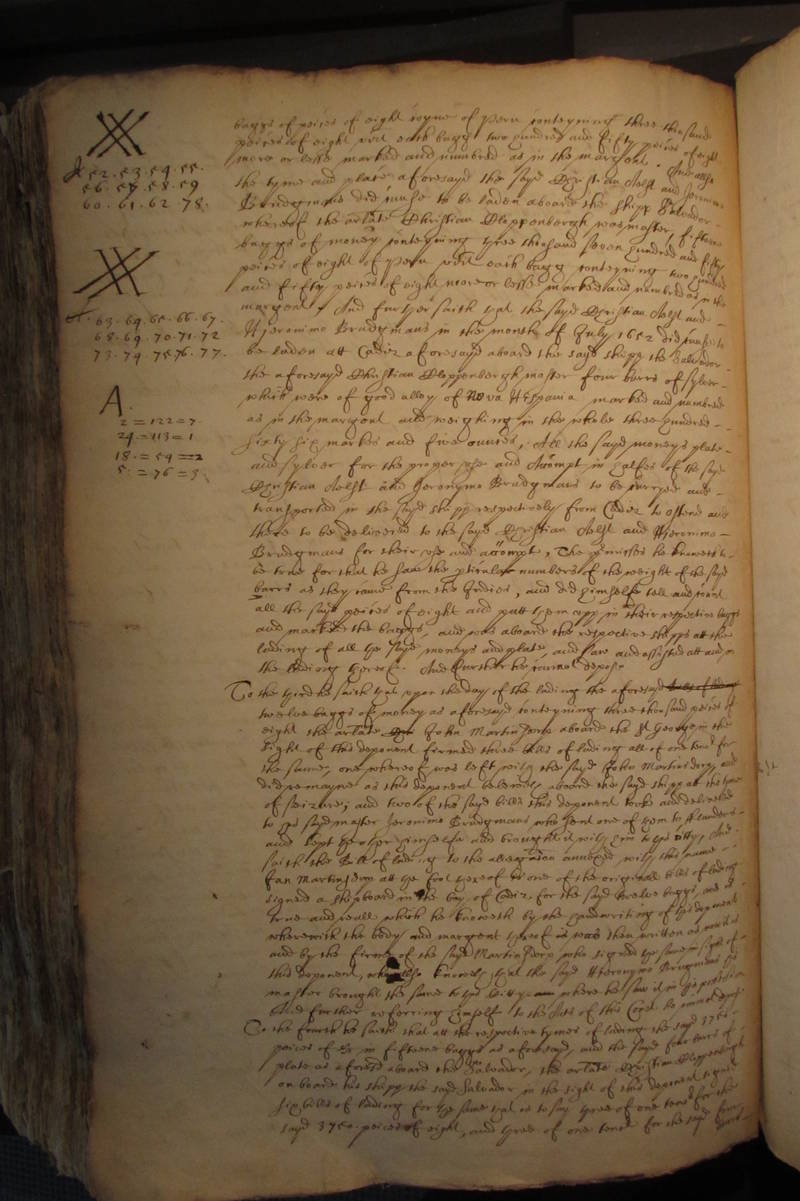 52. 53. 54. 55.
56. 57. 58. 59
60. 61. 62. 78.
63. 64. 65. 66. 67.
68. 69. 70. 71. 72
73. 74. 75 76. 77.
A.
2 = 122 = 7
24 = 113 = 1
18. = 59 = 2
5. = 76 = 3
baggs of peices of eight coyne of Peru conteyning three thousand
peices of eight viz.t each bagg two hundred and fifty peices of eight
more or lesse marked and numbred as in the margent. And att
the tyme and place aforesayd the sayd Christian Aelst and Jeronimo
Brudegmans did cause to be laden aboard the shipp Salvador
whereof the arlate Christian Cloppenbergh was master, fifteene
baggs of money conteyning three thousand seven hundred and fifty
peices of eight of Peru viz.t each bagg conteyning two hundred
and fifty peices of eight more or lesse marked and numbred as in the
margent, And further saith that the sayd Christian Aelst and
Hieronimo Brudegmans in the month of July 1652 did cause to
be laden att Cadiz aforesayd aboard the sayd shipp the Salvador
the aforesayd Christian Cloppenbergh master four barrs of sylver
which were of good alloy of Nova Hispania marked and numbred
as in the margent and weighing in the whole three hundred
sixty six markes and five ounces, All the sayd moneys plate
and sylver for the proper use and accompt in halfes of the sayd
Christian Aelst and Jeronymo Brudegmans to be carryed and
transported in the sayd shipps respectively from Cadiz to Ostend and
there to be delivered to the sayd Christian Aelst and Hieronimo
Brudegmans for their use and accompt, The premisses he knoweth to
be true for that he saw the pticular numbers of the weight of the sayd
barrs as they came from the Indies, and did himselfe tell and count
all the sayd peices of eight and putt them upp in their respective baggs
and marked the baggs, and was aboard the respective shipps att the
lading of all the sayd moneys and plate, and saw and assisted att
the lading thereof. And further he cannot depose
To the third he saith that upon the day of the lading the aforesayd
twelve baggs of money as aforesayd conteyning three thousand peices of
eight the arlate John Martinsdorp aboard the St George in the
sight of this deponent firmed three bills of lading all of one tenor for
the same, one whereof was left with the sayd John Martinsdorp, and
did remayne as this deponent beleeveth aboard the sayd shipp att the tyme
of seizure; and two of the sayd bills this deponent tooke and delivered
to his sayd master Jeronimo Brudegmans who sent one of them to Flanders
and kept the other himselfe and brought it with him to this citty, And
saith the Bill of lading to the allegation annexed with this name
Jan Martinsdorp att the foot thereof is one of the originall bills of lading
signed a shipboard in the bay of Cadiz, for the sayd twelve baggs, and is
true and reall which he knoweth by the handwriting of this deponent
wherewith the body and margent thereof was then written
and by the firme of the sayd Martinsdorp who signed the same in sight of
this deponent, who alsoe knoweth that the sayd Hieronymo Brugmans his
master brought the same to this citty where he saw it in his possession
And further referring himselfe to the Acts of this Court he cannot depose
To the fourth he saith that att the respective tymes of lading the sayd 3750
peices of 8r in fifteene baggs as aforesayd, and the sayd four barrs of
plate as aforesd aboard the Salvador, the arlate Christian Cloppenbergh
on board his shipp the sayd Salvador in the sight of this deponent signed
six bills of lading for the same that is to say three of one tenor for the
sayd 3750. peices of eight, and three of one tenor for the sayd four